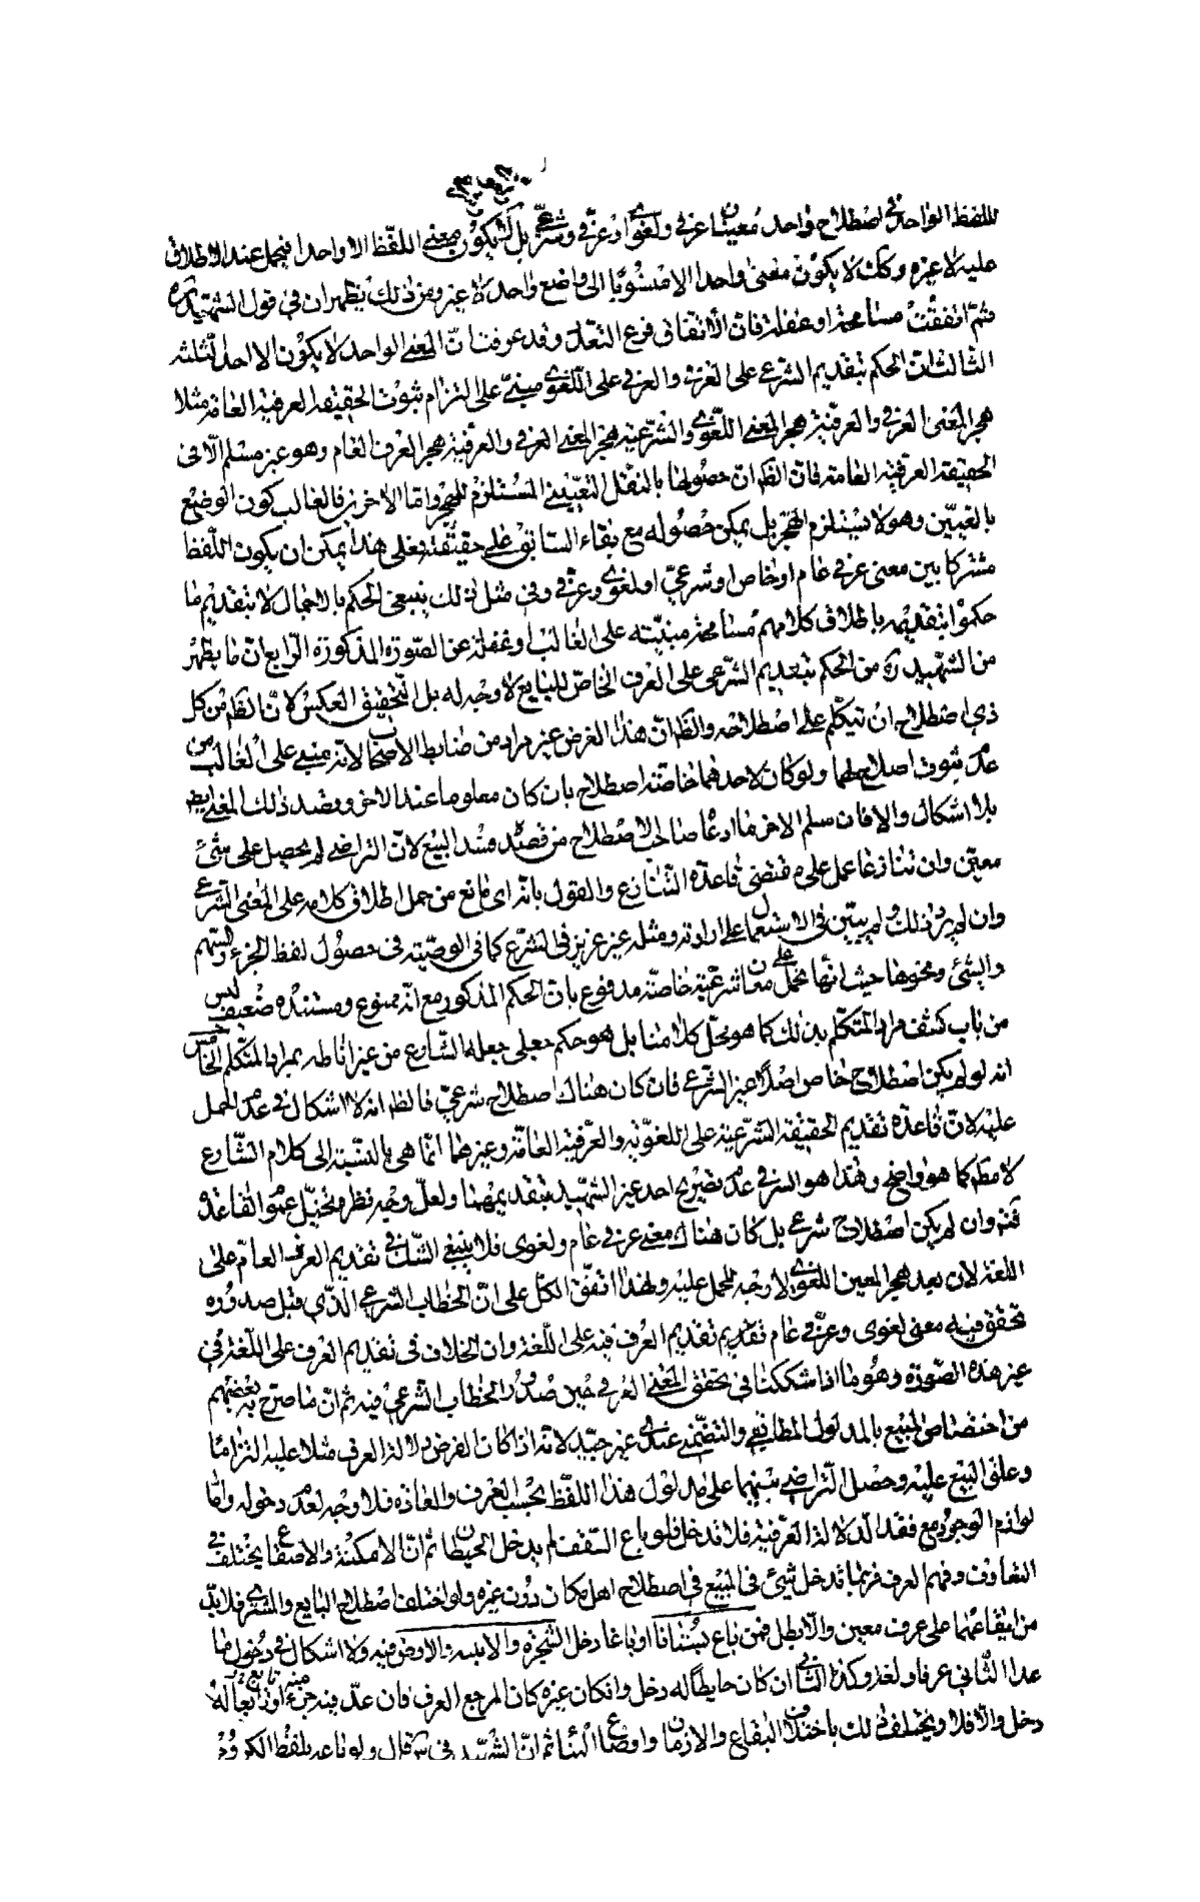 للفظ الواحد في اصطلاح واحد معنيان عرفي ولغوي او عرفي وشرعي بل لا يكون معنى اللفظ الا واحدا فيحمل عند الاطلاق
عليه لا غيره وكك لا يكون معنى واحدا الا منسوبا الى واضع واحد لا غير ومن ذلك يظهر ان في قول الشهيد ره
ثم اتفقت مسامحة او غفلة فان الاتفاق فرع التعدد وقد عرفت ان المعنى الواحد لا يكون الا احد الثلثة
الثالث ان الحكم بتقديم الشرعي على العرفي والعرفي على اللغوي مبني على التزام ثبوت الحقيقة العرفية العامة مثلا
هجر المعنى العرفي والعرفية هجر المعنى اللغوي والشرعية هجر المعنى العرفي والعرفية هجر العرف العام وهو غير مسلم الا في
الحقيقة العرفية العامة فان الظ ان حصولها بالنقل التعييني المستلزم للهجر واما الاخرين فالغالب كون الوضع
بالتعيين وهو لا يستلزم الهجر بل يمكن حصوله مع بقاء السابق على حقيقته فعلى هذا يمكن ان يكون اللفظ
مشتركا بين معنى عرفي عام او خاص او شرعي او لغوي وعرفي وفي مثل ذلك ينبغي الحكم بالاجمال لا بتقديم ما
حكموا بتقديمه باطلاق كلامهم مسامحة مبنية على الغالب او غفلة عن الصورة المذكورة الرابع ان ما يظهر
من الشهيد ره من الحكم بتقديم الشرعي على العرف الخاص للبايع لا وجه له بل التحقيق العكس لان الظ من كل
ذي اصطلاح ان يتكلم على اصطلاحه والظ ان هذا الغرض غير مراد من ضابط الاصحاب لانه مبني على الغالب من
عدم ثبوت اصطلاح لهما ولو كان لاحدهما خاصة اصطلاح بان كان معلوما عند الاخر وقصد ذلك المعنى يصح
بلا اشكال والا فان سلم الاخر ما ادعاه صاحب الاصطلاح من قصده فسد البيع لان التراضي لم يحصل على شئ
معين وان تنازعا عمل على مقتضى قاعدة التنازع والقول بانه اي مانع من حمل اطلاق كلامه على المعنى الشرعي
وان لم يرد ذلك ولم يبين في الاستعمال على ارادته ومثله غير عزيز في الشرع كما في الوصية في حصول لفظ الجزء والسهم
والشئ ونحوها حيث انها تحمل على معان شرعية خاصة مدفوع بان الحكم المذكور مع انه ممنوع ومستنده ضعيف ليس
من باب كشف مراد المتكلم بذلك كما هو محل كلامنا بل هو حكم جعلي جعله الشارع من غير اناطة بمراد المتكلم الخامس
انه لو لم يكن اصطلاح خاص اصلا غير الشرعي فان كان هناك اصطلاح شرعي فالظ انه لا اشكال في عدم الحمل
عليه لان قاعدة تقديم الحقيقة الشرعية على اللغوية والعرفية العامة وغيرهما انما هي بالنسبة الى كلام الشارع
لا مطلقا كما هو واضح وهذا هو السر في عدم تصريح احد غير الشهيد بتقديمه هنا ولعل وجه نظره تخيل عموم القاعدة
فتم وان لم يكن اصطلاح شرعي بل كان هناك معنى عرفي عام ولغوي فلا ينبغي الشك في تقديم العرف العام على
اللغة لان بعد هجر المعنى اللغوي لا وجه للحمل عليه ولهذا اتفق الكل على ان الخطاب الشرعي الذي قبل صدوره
تحقق فيه معنى لغوي وعرفي عام تقديم تقديم العرف فيه على اللغة وان الخلاف في تقديم العرف على اللغة في
غير هذه الصورة وهو ما اذا شككنا في تحقق المعنى العرفي حين صدور الخطاب الشرعي فيه ثم ان ما صرح به بعضهم
من اختصاص المبيع بالمدلول المطابقي والتضمني عندي غير جيد لانه اذا كان الفرض دلالة العرف مثلا عليه التزاما
وعلق البيع عليه وحصل التراضي بينهما على مدلول هذا اللفظ بحسب العرف والعادة فلا وجه لعدم دخوله واما
لوازم الوجود مع فقد الدلالة العرفية فلا تدخل فلو باع السقف لم يدخل الحيطان ثم ان الامكنة والاصقاع يختلف في
التعارف وفهم العرف فربما تدخل شئ في المبيع في اصطلاح اهل مكان دون غيره ولو اختلف اصطلاح البايع والمشتري فلابد
من ايقاعهما على عرف معين والا بطل فمن باع بستانا او باغا دخل الشجرة والابنية والارض فيه ولا اشكال في دخول ما
عدا الثاني عرفا ولغة وكذا الثاني ان كان حايطا له دخل وان كان غيره كان المرجع العرف فان عد فيه جزء منه او تابعا له
دخل والا فلا ويختلف ذلك باختلاف البقاع والازمان واوضاع البناء ثم ان الشهيد في س قال ولو باعه بلفظ الكروم